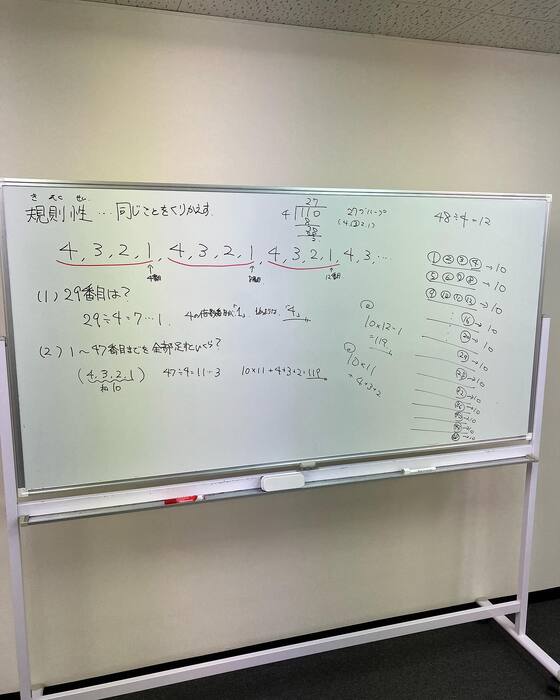 きそくせい
規則性…同じことをくりかえす.
4, 3, 2, 1, 4, 3, 2, 1, 4, 3, 2, 1, 4, 3…
4番目
8番目
12番目
(1) 29番目は?
29÷4=7…1.
4の倍数番目が「1」
「4」
(2) 1〜47番目までを全部足すといくら?
(4, 3, 2, 1)
和10
47÷4=11…3
10×11+4+3+2=119
27
4)110
8
27グループ
48÷4=12
10×12-1
=119
10×11
+4+3+2
①②③④→10
⑤⑥⑦⑧→10
⑨⑩⑪⑫→10
⑯→10
⑳→10
→10
→10
→10
→10
→10
→10
→10